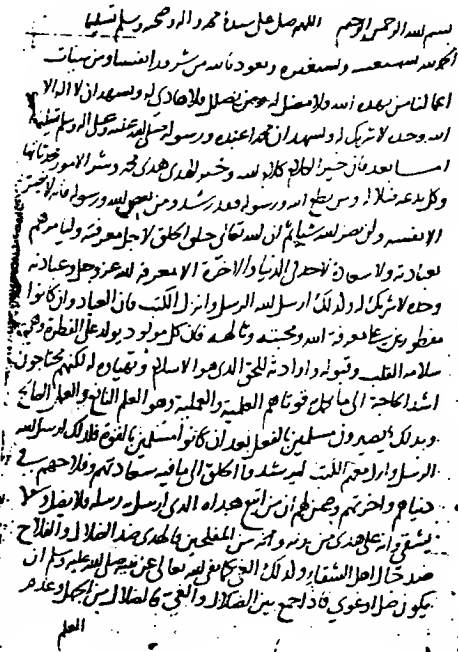 بسم الله الرحمن الرحيم اللهم صل على سيدنا محمد واله وصحبه وسلم تسليما
الحمد لله نستعينه ونستغفره ونعوذ بالله من شرور انفسنا ومن سيات
اعمالنا من يهده الله فلا مضل له ومن يضلل فلا هادي له ونشهد ان لا اله الا
الله وحده لا شريك له ونشهد ان محمدا عبده ورسوله صلى الله عليه وعلى اله وسلم تسليما
اما بعد فان خير الكلام كلام الله وخير الهدى هدى محمد وشر الامور محدثاتها
وكل بدعة ضلالة ومن يطع الله ورسوله فقد رشد ومن يعص الله ورسوله فانه لا يضر
الا نفسه ولن يضر الله شيا ثم ان الله تعالى خلق الخلق لاجل معرفته وليامرهم
بعبادته ولا سعادة لاحد في الدنيا والاخرة الا بمعرفة الله عز وجل وعبادته
وحده لا شريك له ولذلك ارسل الله الرسل وانزل الكتب فان العباد وان كانوا
مفطورين على معرفة الله ومحبته وتالهه فان كل مولود يولد على الفطرة وهي
سلامة القلب وقبوله وارادته للحق الذي هو الاسلام لكنهم محتاجون
اشد الحاجة الى ما يكمل قوتاهم العلمية والعملية وهو العلم النافع والعمل الصالح
وبذلك يصيرون مسلمين بالفعل بعد ان كانوا مسلمين بالقوة فلذلك ارسل الله
الرسل وانزل معهم الكتب ليرشدوا الخلق الى ما فيه سعادتهم وفلاحهم في
دنياهم واخرتهم وضمن لهم ان من اتبع هداه الذي ارسل به رسله فلا يضل ولا
يشقى وانه على هدى من ربه وانه من المفلحين فالهدى ضد الضلال والفلاح
ضد حال اهل الشقاء ولذلك الغي كما نفى الله تعالى عن نبيه صلى الله عليه وسلم ان
يكون ضل او غوي فاذا جمع بين الضلال والغي فالضلال من الجهل وعدم
العلم